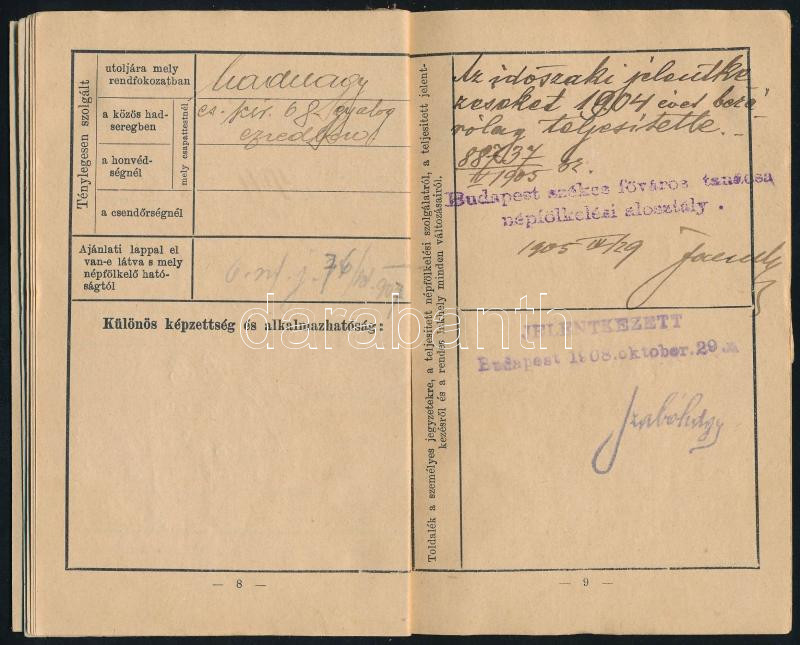 Ténylegesen szolgált
utoljára mely
rendfokozatban
hadnagy
a közös had-
seregben
a honvéd-
ségnél
mely csapattestnél
cs. kir. 68. gyalog
ezredben
a csendőrségnél
Ajánlati lappal el
van-e látva s mely
népfölkelő ható-
ságtól
Különös képzettség és alkalmazhatóság:
— 8 —
Toldalék a személyes jegyzetekre, a teljesített népfölkelési szolgálatról, a teljesített jelent-
kezésről és a rendes lakhely minden változásairól.
Az időszaki jelentke
zéseket 1904 évet bezá
rólag teljesítette.
88737
IV 1905 sz.
Budapest székes főváros tanácsa
népfölkelési alosztály.
1905 IV/29
JELENTKEZETT
Budapest 1908.oktober.29.
Szabóhgy
— 9 —
darabanth